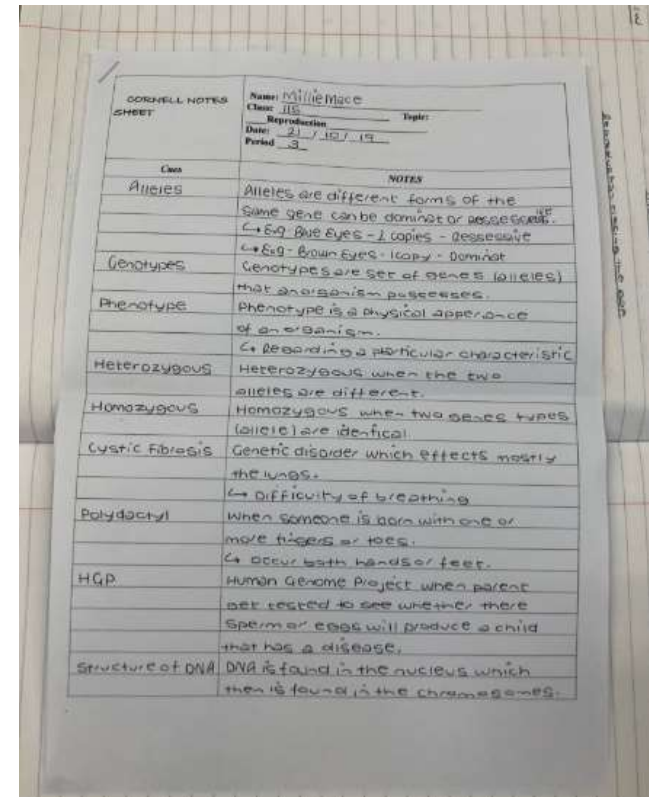 CORNELL NOTES
SHEET
Name: Millie Mace
Class: 11S Topic:
Reproduction
Date: 21 / 10 / 19
Period 3
Cues NOTES
Alleles Alleles are different forms of the
same gene can be dominat or
↳ E.g - Blue Eyes - 2 copies - Ressessive
↳ E.g - Brown Eyes - 1 copy - Dominat
Genotypes Genotypes are set of genes (alleles)
that an organism possesses.
Phenotype Phenotype is a physical apperance
of an organism.
↳ Regarding a particular characteristic
Heterozygous Heterozygous when the two
alleles are different.
Homozygous Homozygous when two genes types
(allele) are identical
Cystic Fibrosis Genetic disorder which effects mostly
the lungs.
↳ Difficulty of breathing
Polydactyl When someone is born with one or
more fingers or toes.
↳ occur both hands or feet.
HGP Human Genome Project when parent
get tested to see whether there
sperm or eggs will produce a child
that has a disease.
Structure of DNA DNA is found in the nucleus which
then is found in the chromosomes.